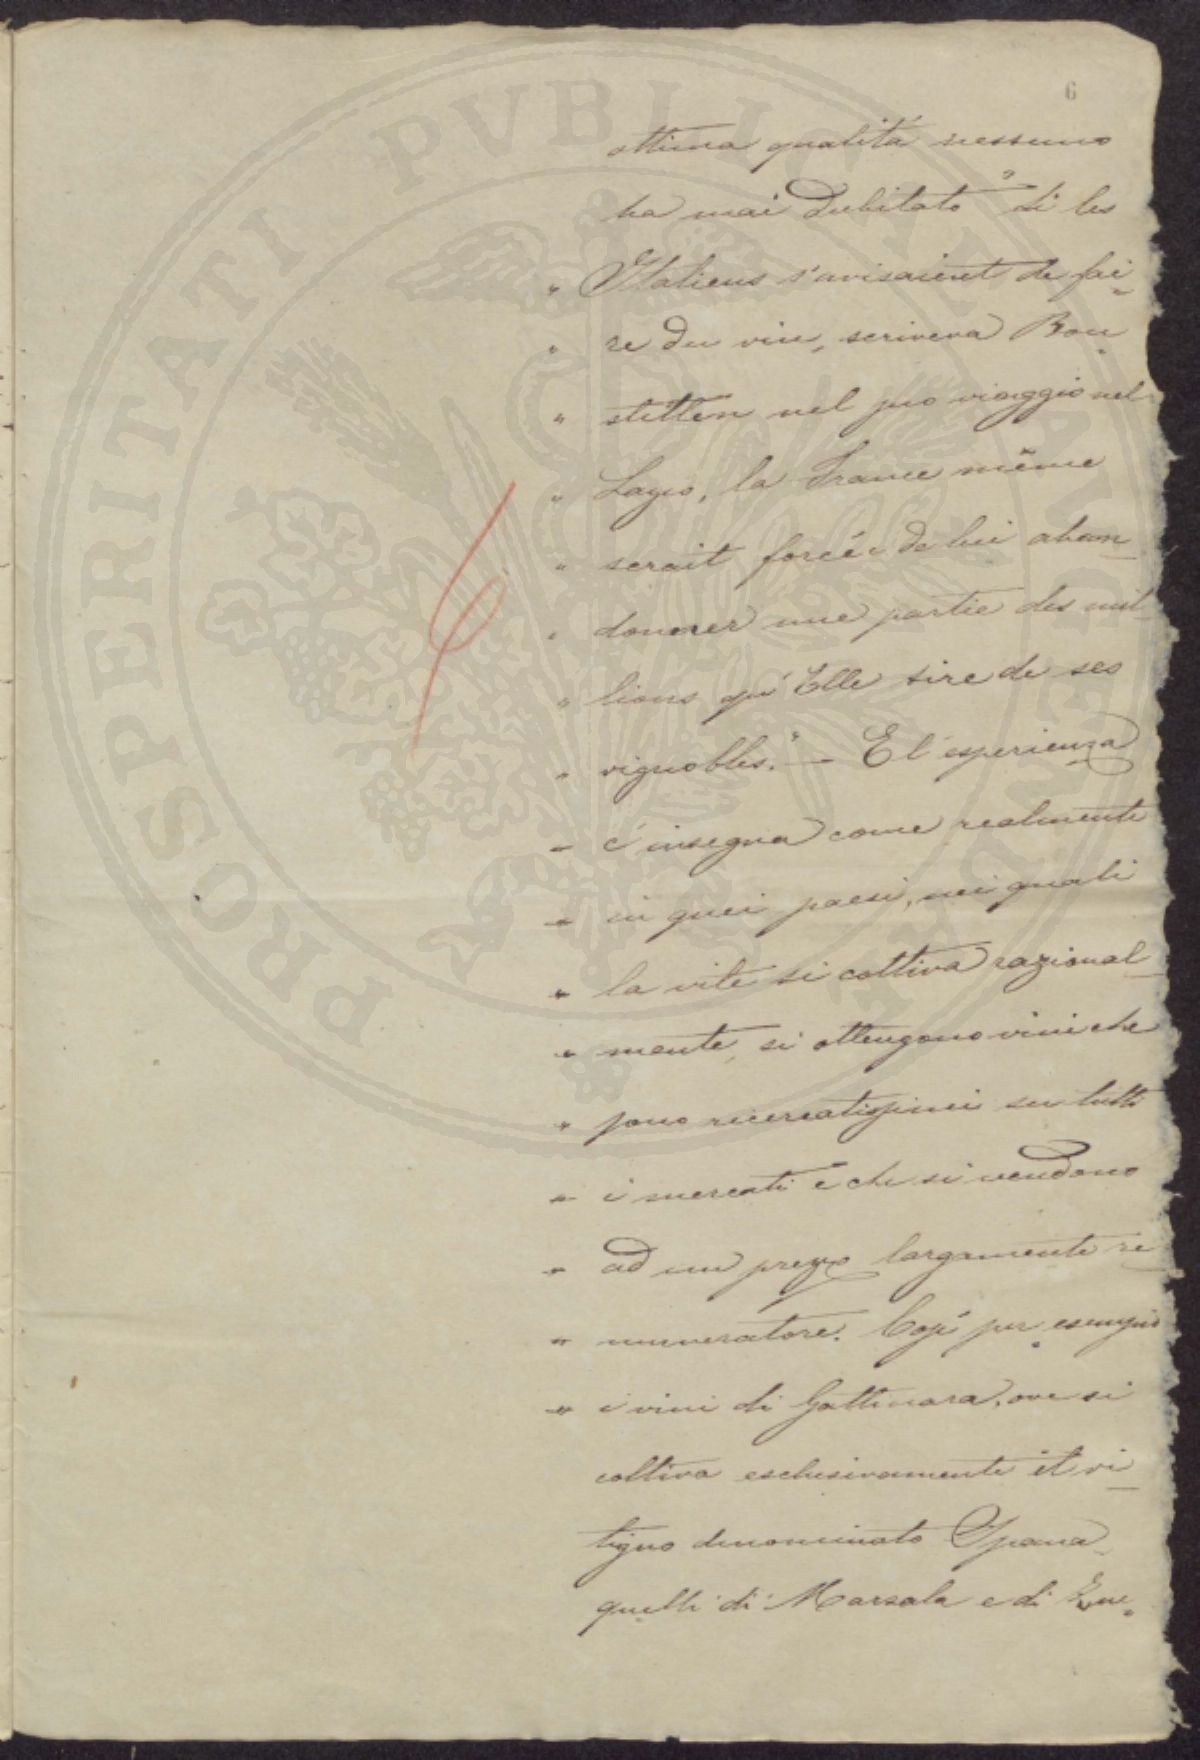 6
ottima qualità nessuno
ha mai dubitato "Si les
" Italiens s'avisaient de fai=
" re du vin, scriveva Bon=
" stetten nel suo viaggio nel
" Lazio, la France même
" serait forcée de lui aban=
" donner une partie des mil=
" lions qu'Elle tire de ses
" vignobles." — E l'esperienza
" c'insegna come realmente
" in quei paesi, nei quali
" la vite si coltiva razional=
" mente, si ottengono vini che
" sono ricercatissimi su tutti
" i mercati e che si vendono
" ad un prezzo largamente re=
" muneratore. Così per esempio
" i vini di Gattinara, ove si
coltiva esclusivamente il vi=
tigno denominato Spana,
quelli di Marsala e di
PROSPERITATI PVBLICAE AVGENDAE